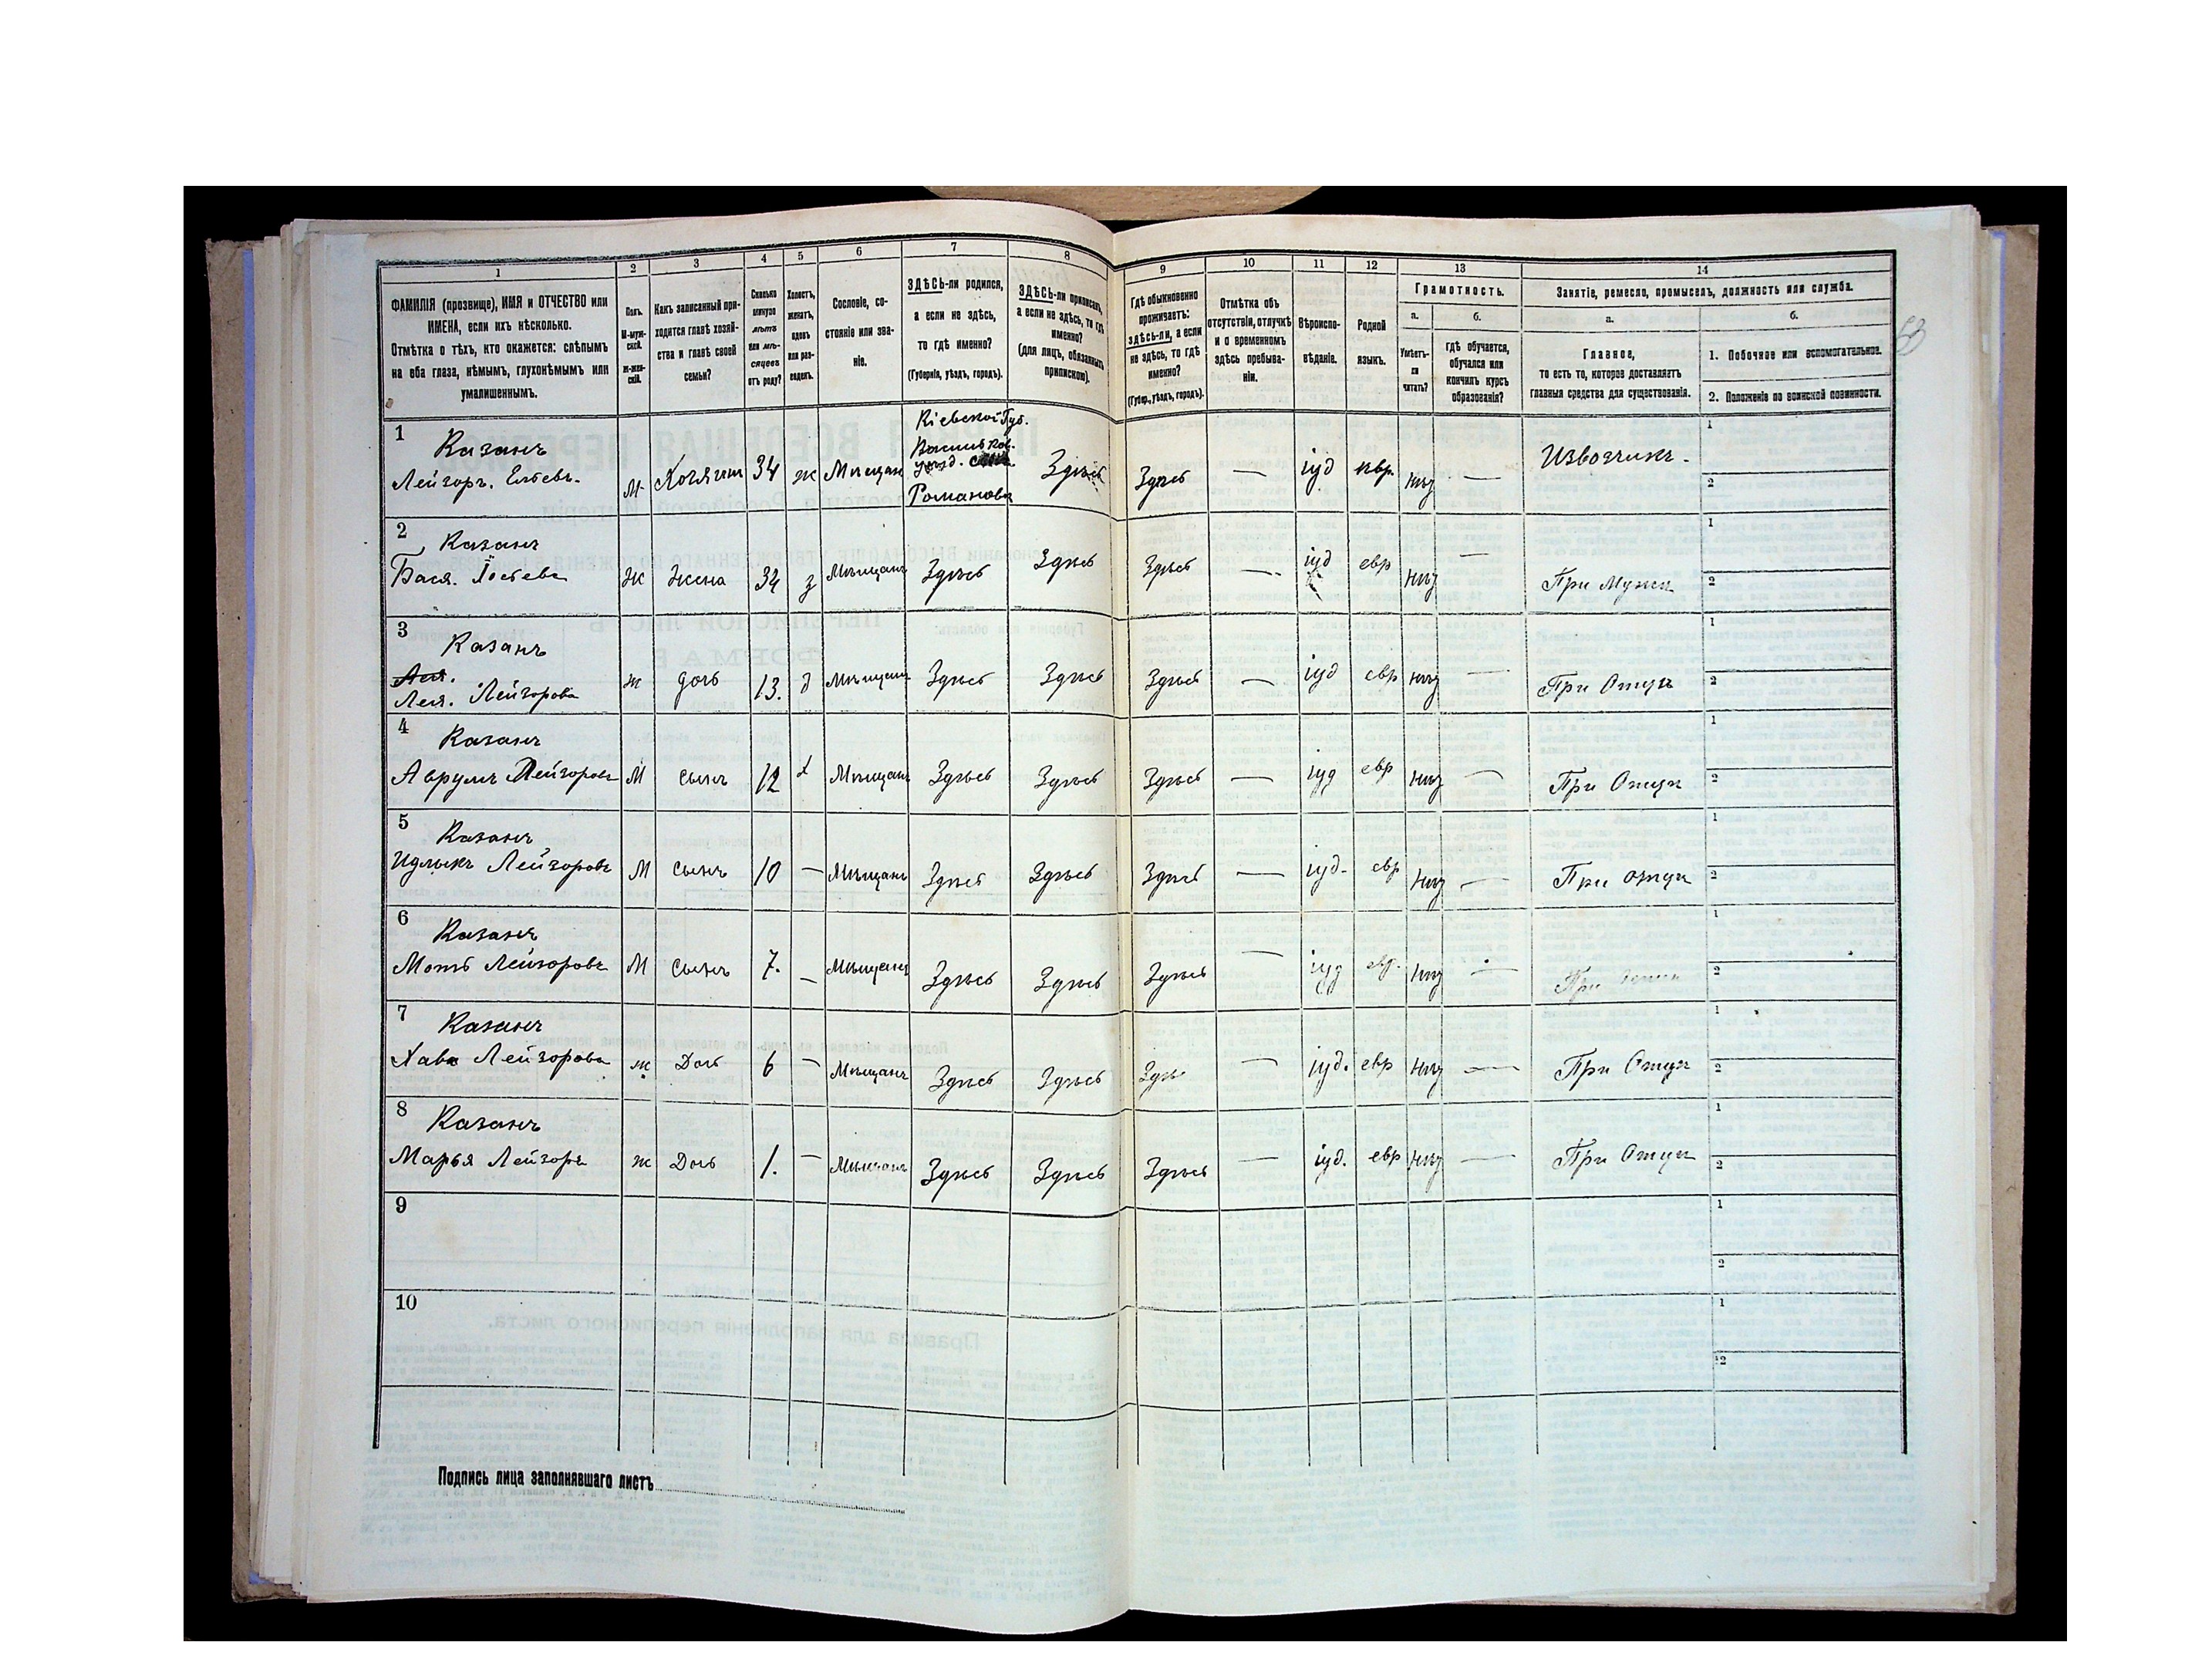 1 2 3 4 5 6 7 8 9 10 11 12 13 14
ФАМИЛІЯ (прозвище), ИМЯ и ОТЧЕСТВО или
ИМЕНА, если ихъ нѣсколько.
Отмѣтка о тѣхъ, кто окажется: слѣпымъ
на оба глаза, нѣмымъ, глухонѣмымъ или
умалишеннымъ.
Полъ.
М-муж-
ской.
ж-жен-
скій.
Какъ записанный при-
ходится главѣ хозяй-
ства и главѣ своей
семьи?
Сколько
минуло
лѣтъ
или мѣ-
сяцевъ
отъ роду?
Холостъ,
женатъ,
вдовъ
или раз-
веденъ.
Сословіе, со-
стояніе или зва-
ніе.
ЗДѢСЬ-ли родился,
а если не здѣсь,
то гдѣ именно?
(Губернія, уѣздъ, городъ).
ЗДѢСЬ-ли приписанъ,
а если не здѣсь, то гдѣ
именно?
(для лицъ, обязанныхъ
припискою).
Гдѣ обыкновенно
проживаетъ:
здѣсь-ли, а если
не здѣсь, то гдѣ
именно?
(Губер., уѣздъ, городъ).
Отмѣтка объ
отсутствіи, отлучкѣ
и о временномъ
здѣсь пребыва-
ніи.
Вѣроиспо-
вѣданіе.
Родной
языкъ.
Грамотность.
а.
Умѣетъ-
ли
читать?
б.
гдѣ обучается,
обучался или
кончилъ курсъ
образованія?
Занятіе, ремесло, промыселъ, должность или служба.
а.
Главное,
то есть то, которое доставляетъ
главныя средства для существованія.
б.
1. Побочное или вспомогательное.
2. Положеніе по воинской повинности.
53
1 Казанъ
Лейзоръ. М Хозяинъ 34 ж Мѣщан
Кіевской Губ.
Васильков.
уѣзд.
Романовк
Здѣсь Здѣсь — іуд евр. нѣт — Извозчикъ. 1 2
2 Казанъ
Бася. Ж Жена 34 з Мѣщанъ Здѣсь Здѣсь Здѣсь — іуд евр нѣт — При Мужѣ 1 2
3 Казанъ
Лея. Лейзорова ж дочь 13. д Мѣщанъ Здѣсь Здѣсь Здѣсь — іуд евр нѣт — При Отцѣ 1 2
4 Казанъ
Аврумъ Лейзоровъ М сынъ 12 х Мѣщанъ Здѣсь Здѣсь Здѣсь — іуд евр нѣт — При Отцѣ 1 2
5 Казанъ
Лейзоровъ М сынъ 10 — Мѣщанъ Здѣсь Здѣсь Здѣсь — іуд. евр нѣт — При отцѣ 1 2
6 Казанъ
Моть Лейзоровъ М сынъ 7. — Мѣщанъ Здѣсь Здѣсь Здѣсь — іуд евр. нѣт — При 1 2
7 Казанъ
Хава Лейзорова ж Дочь 6 — Мѣщанъ Здѣсь Здѣсь Здѣсь — іуд. евр нѣт — При Отцѣ 1 2
8 Казанъ
Марья Лейзоръ ж Дочь 1. — Мѣщанъ Здѣсь Здѣсь Здѣсь — іуд. евр нѣт — При Отцѣ 1 2
9 1 2
10 1 2
Подпись лица заполнявшаго листъ